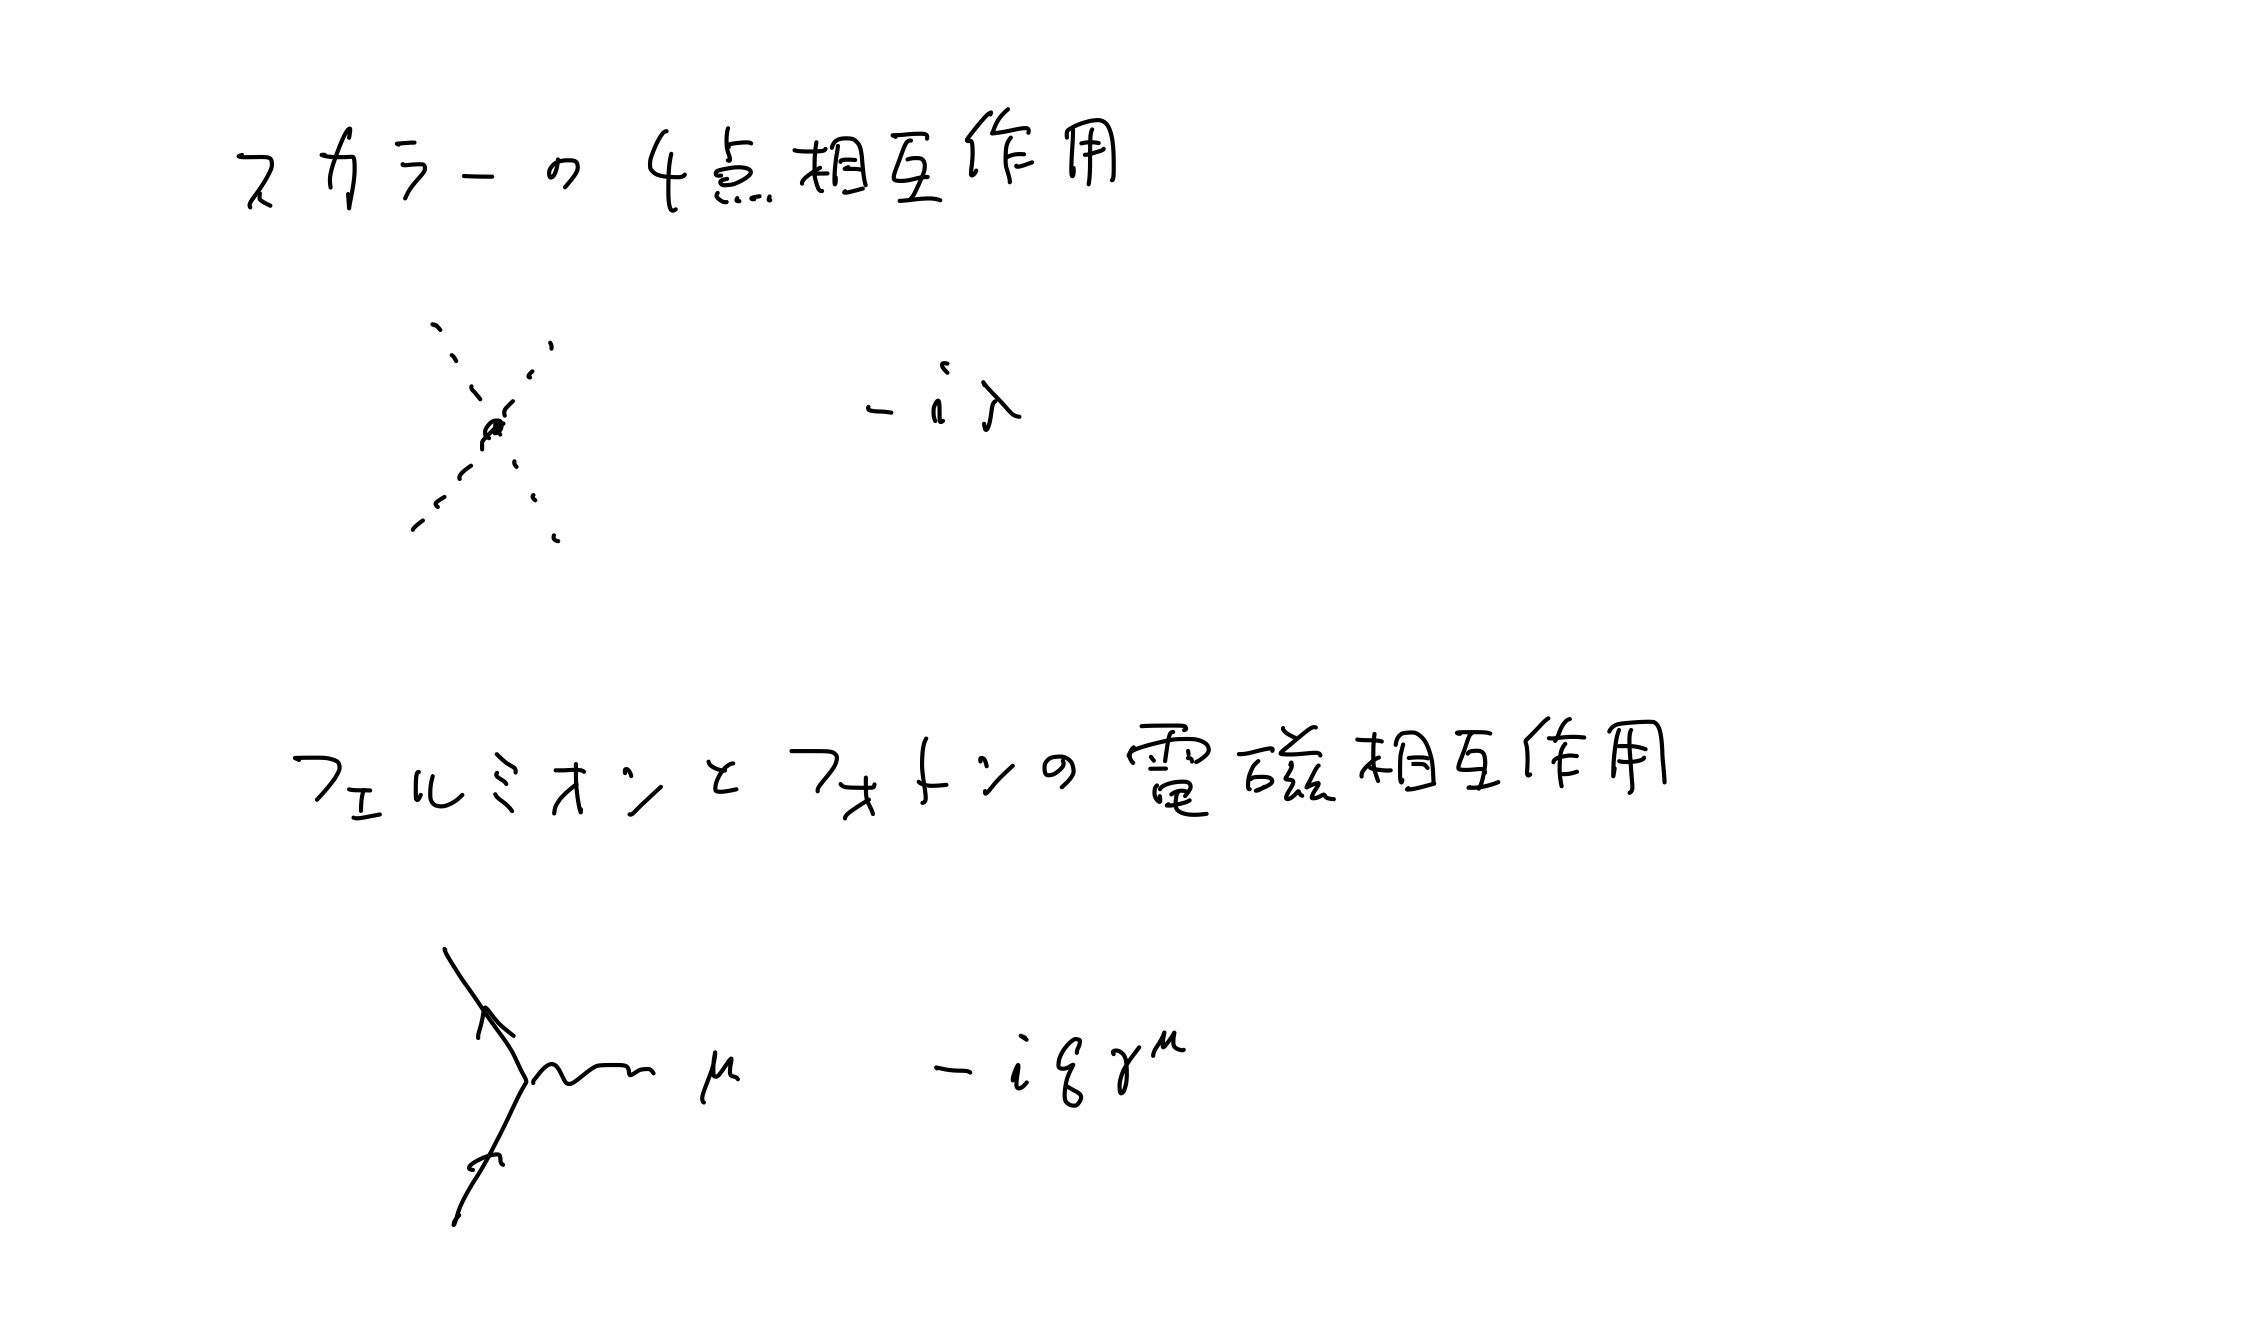 スカラーの4点相互作用
-iλ
フェルミオンとフォトンの電磁相互作用
μ -iqγ^μ